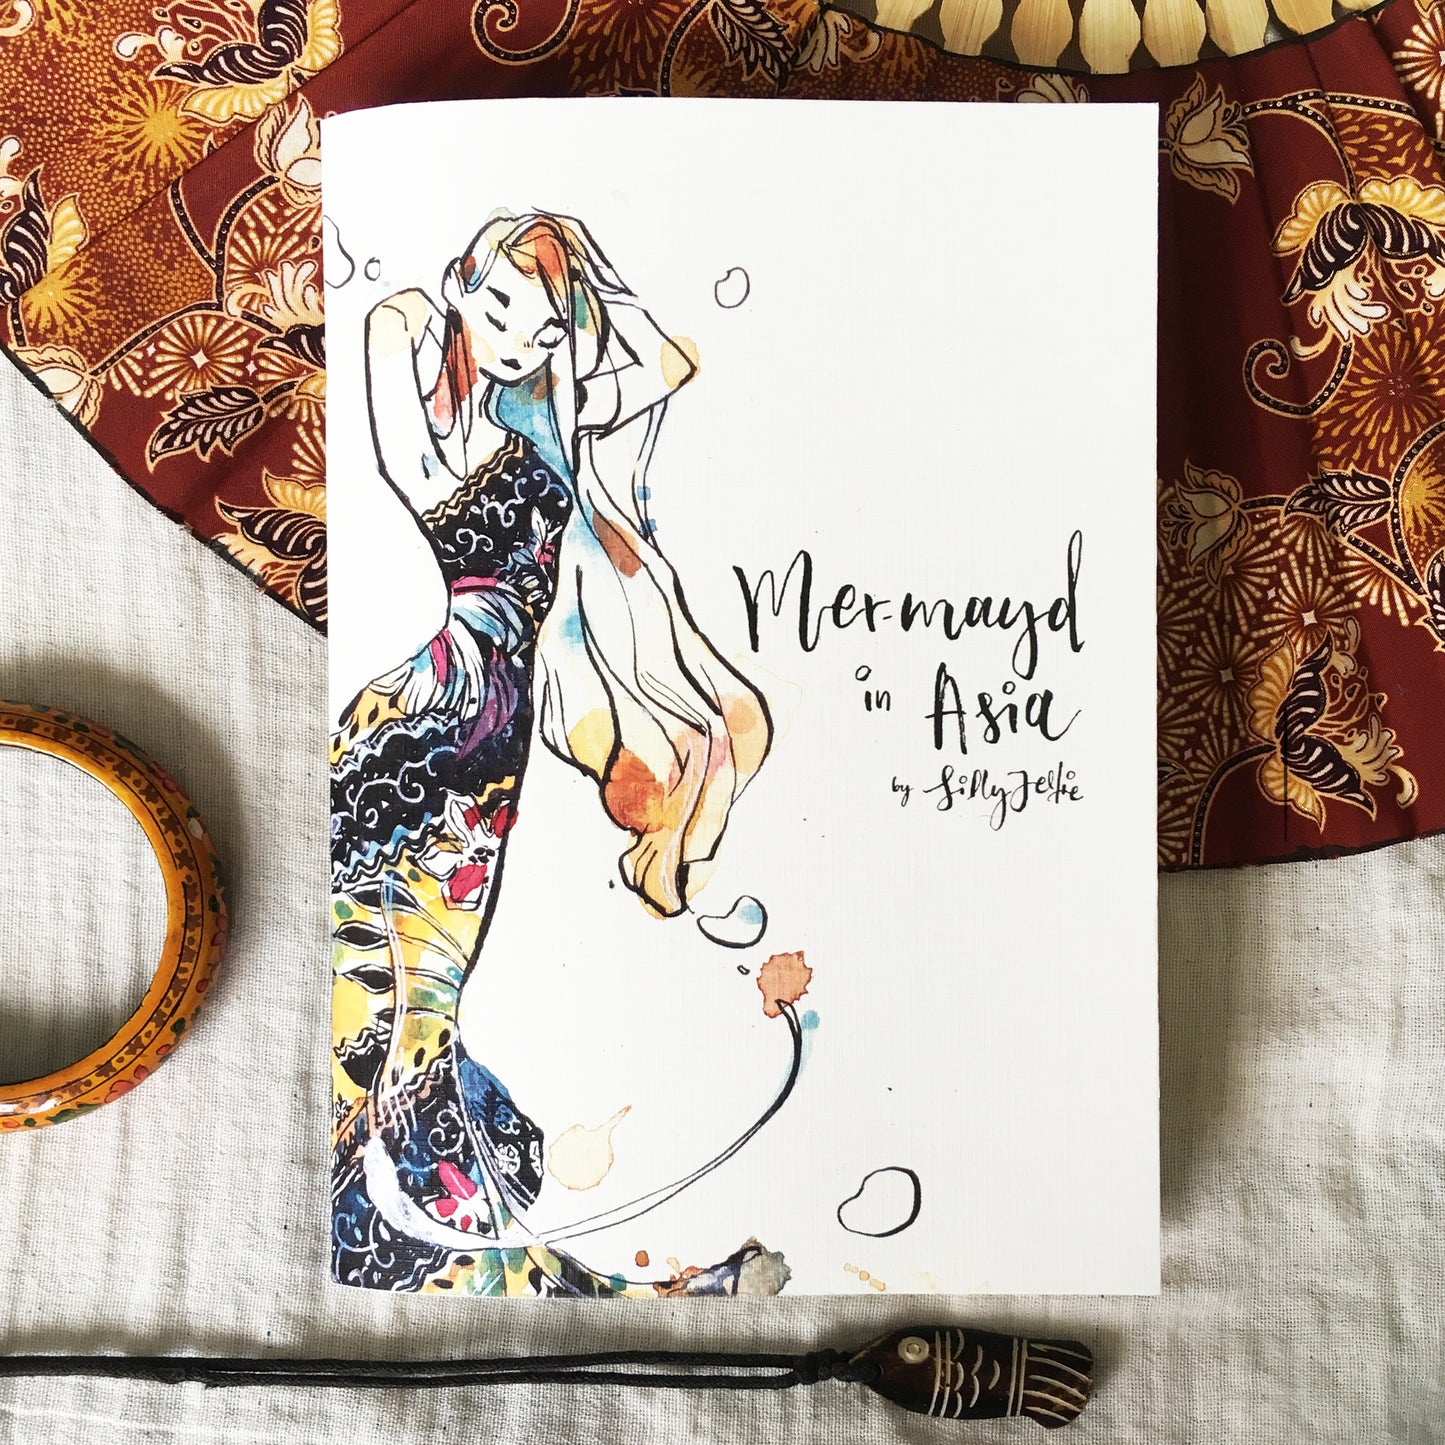 Mer-mayd
in Asia
by SillyJellie